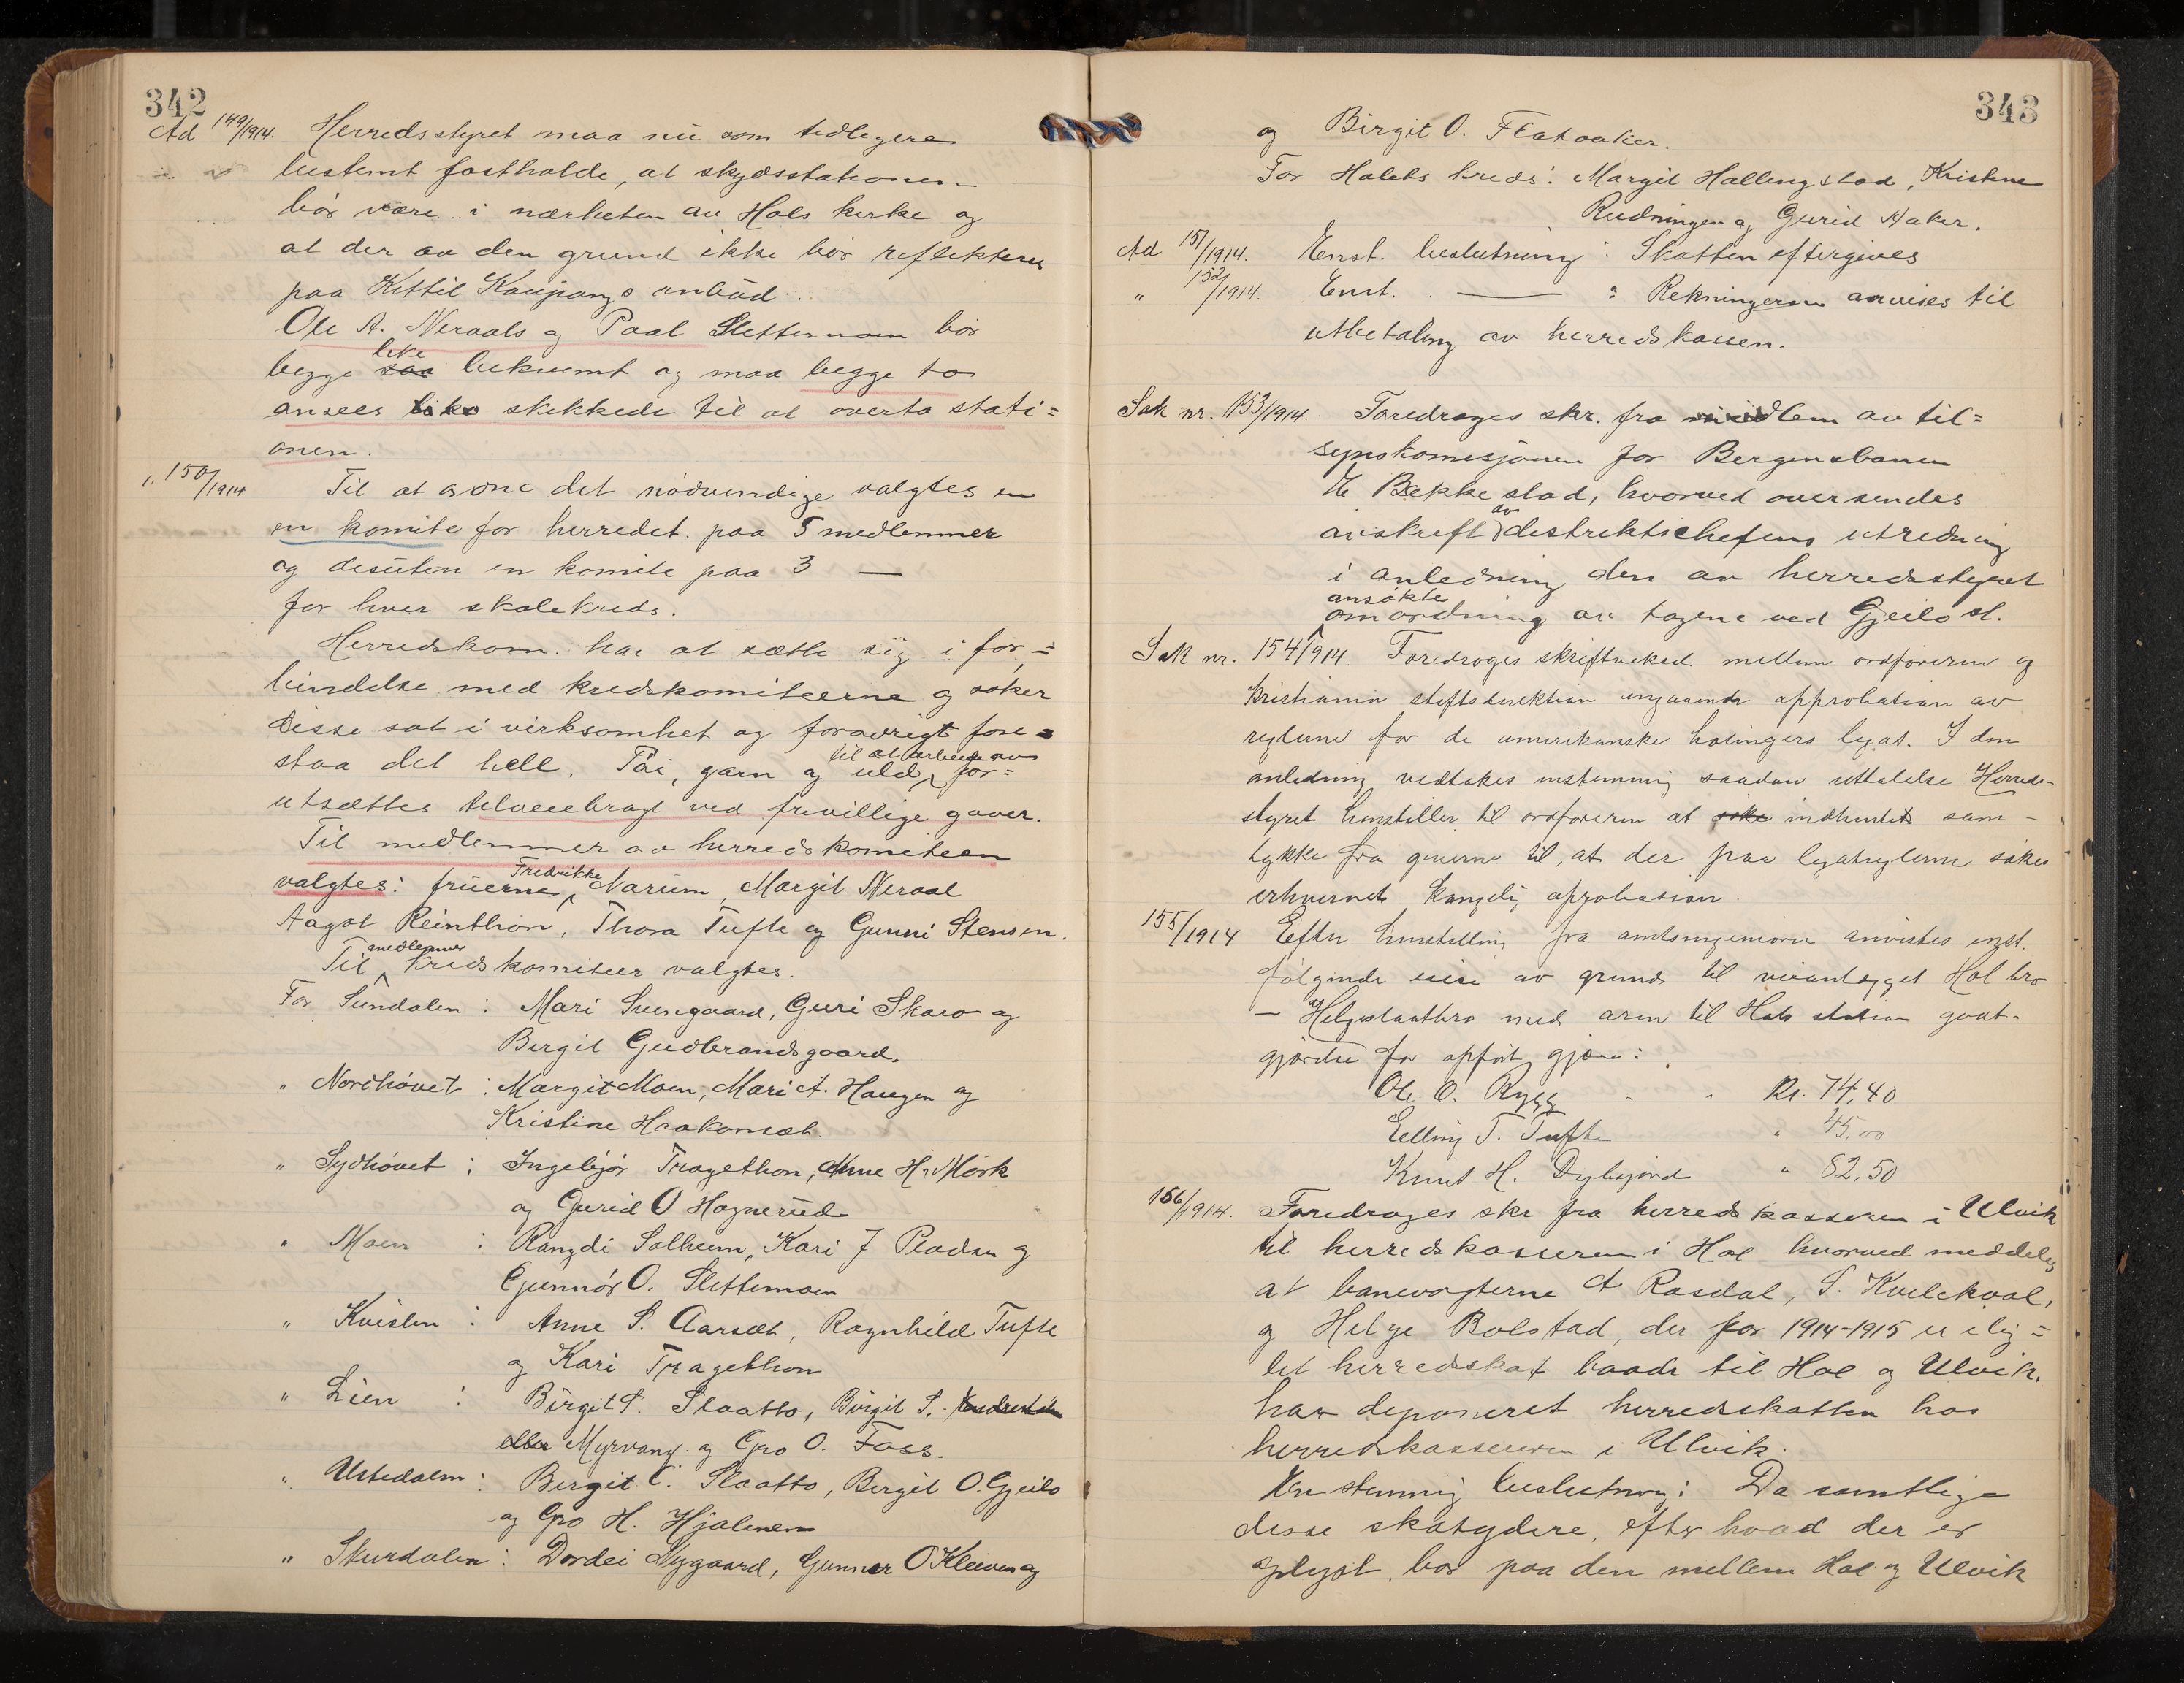 342
Ad 149/1914. Herredsstyret maa nu som tidligere
bestemt fastholde, at skydsstationen
bör være i nærheten av Hols kirke og
at der av den grund ikke bör reflekteres
paa Kittil Kaupangs anbud.
Ole A. Neraals og Paal Slettemoen bor
begge saa like bekvemt og maa begge to
ansees like skikkede til at overta stati=
onen.
" 150/1914 Til at ordne det nödvendige valgtes en
en komite for herredet paa 5 medlemmer
og desuten en komite paa 3 —
for hver skolekreds.
Herredskom. har at sætte sig i for=
bindelse med kredskomiteerne og söker
disse sat i virksomhet og forövrigt fore=
staa det hele. Töi, garn og uld til at arbeide av for=
utsættes tilveiebragt ved frivillige gaver.
Til medlemmer av herredskomiteen
valgtes: fruerne Fredrikke Narum, Margit Neraal
Aagot Reinthon, Thora Tufte og Gunni Stensen.
Til medlemmer kredskomiteer valgtes.
For Sundalen: Mari Svengaard, Guri Skaro og
Birgit Gudbrandsgaard.
" Nordhövet: Margit Moen, Mari A. Haugen og
Kristine Haakonset.
" Sydhövet: Ingebjör Tragethon, Anne H. Mörk
og Gurid O Hagnerud
" Moen: Rangdi Solheim, Kari J Pladsen og
Gunnör O. Slettemoen
" Kvislen: Anne S. Aarset, Ragnhild Tufte
og Kari Tragethon
" Lien: Birgit S. Slaatto, Birgit S.
eller Myrvang og Gro O. Foss.
" Ustedalen: Birgit C. Slaatto, Birgit O. Gjeilo
og Gro H. Hjalmen
" Skurdalen: Dordei Nygaard, Gunnor O Kleiven og
343
og Birgit O. Flatoaker.
For Holets kreds: Margit Hallingstad, Kristine
Rudningen og Gurid Aaker.
Ad 151/1914. Enst. beslutning: Skatten eftergives
" 152/1914. Enst. — : Rekningerne anvises til
utbetaling av herredskassen.
Sak nr. 153/1914. Foredroges skr. fra medlem av til=
synskomisjonen for Bergensbanen
H Bækkestad, hvorved oversendes
avskrift av distriktschefens utredning
i anledning den av herredsstyret
ansökte omordning av togene ved Gjeilo st.
Sak nr. 154/1914. Foredroges skriftveksel mellem ordföreren og
Kristiania stiftsdirektion angaaende approbation av
reglerne for de amerikanske holingers legat. I den
anledning vedtokes enstemmig saadan uttalelse Herreds-
styret henstiller til ordföreren at söke indhentet sam-
tykke fra giverne til, at der paa legatreglerne sökes
erhvervet kongelig aprobasion.
155/1914 Efter henstilling fra amtsingeniören anvistes enst.
fölgende eiere av grund til veianlægget Hol bro
— Helgeslaatbro med arm til Hols station godt-
gjörelse for opfört gjære:
Ole O. Rygg " " Kr. 74,40
Elling T. Tufte " 45,00
Knut H. Dybsjord " 82,50
156/1914. Foredroges skr fra herredskasseren i Ulvik
til herredskasseren i Hol hvorved meddeles
at banevogterne A Rosdal, S. Kvilekval,
og Helge Bolstad, der for 1914-1915 er ilig=
net herredskat baade til Hol og Ulvik,
har deponeret herredskatten hos
herredskassereren i Ulvik.
Enstemmig beslutning: Da samtlige
disse skatydere, efter hvad der er
oplyst, bor paa den mellem Hol og Ulvik